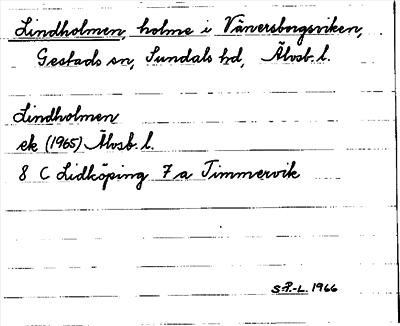 Lindholmen, holme i Vänersborgsviken,
Gestads sn, Sundals hd, Älvsb. l.
Lindholmen
ek (1965) Älvsb. l.
8 C Lidköping 7 a Timmervik
S P.-L. 1966